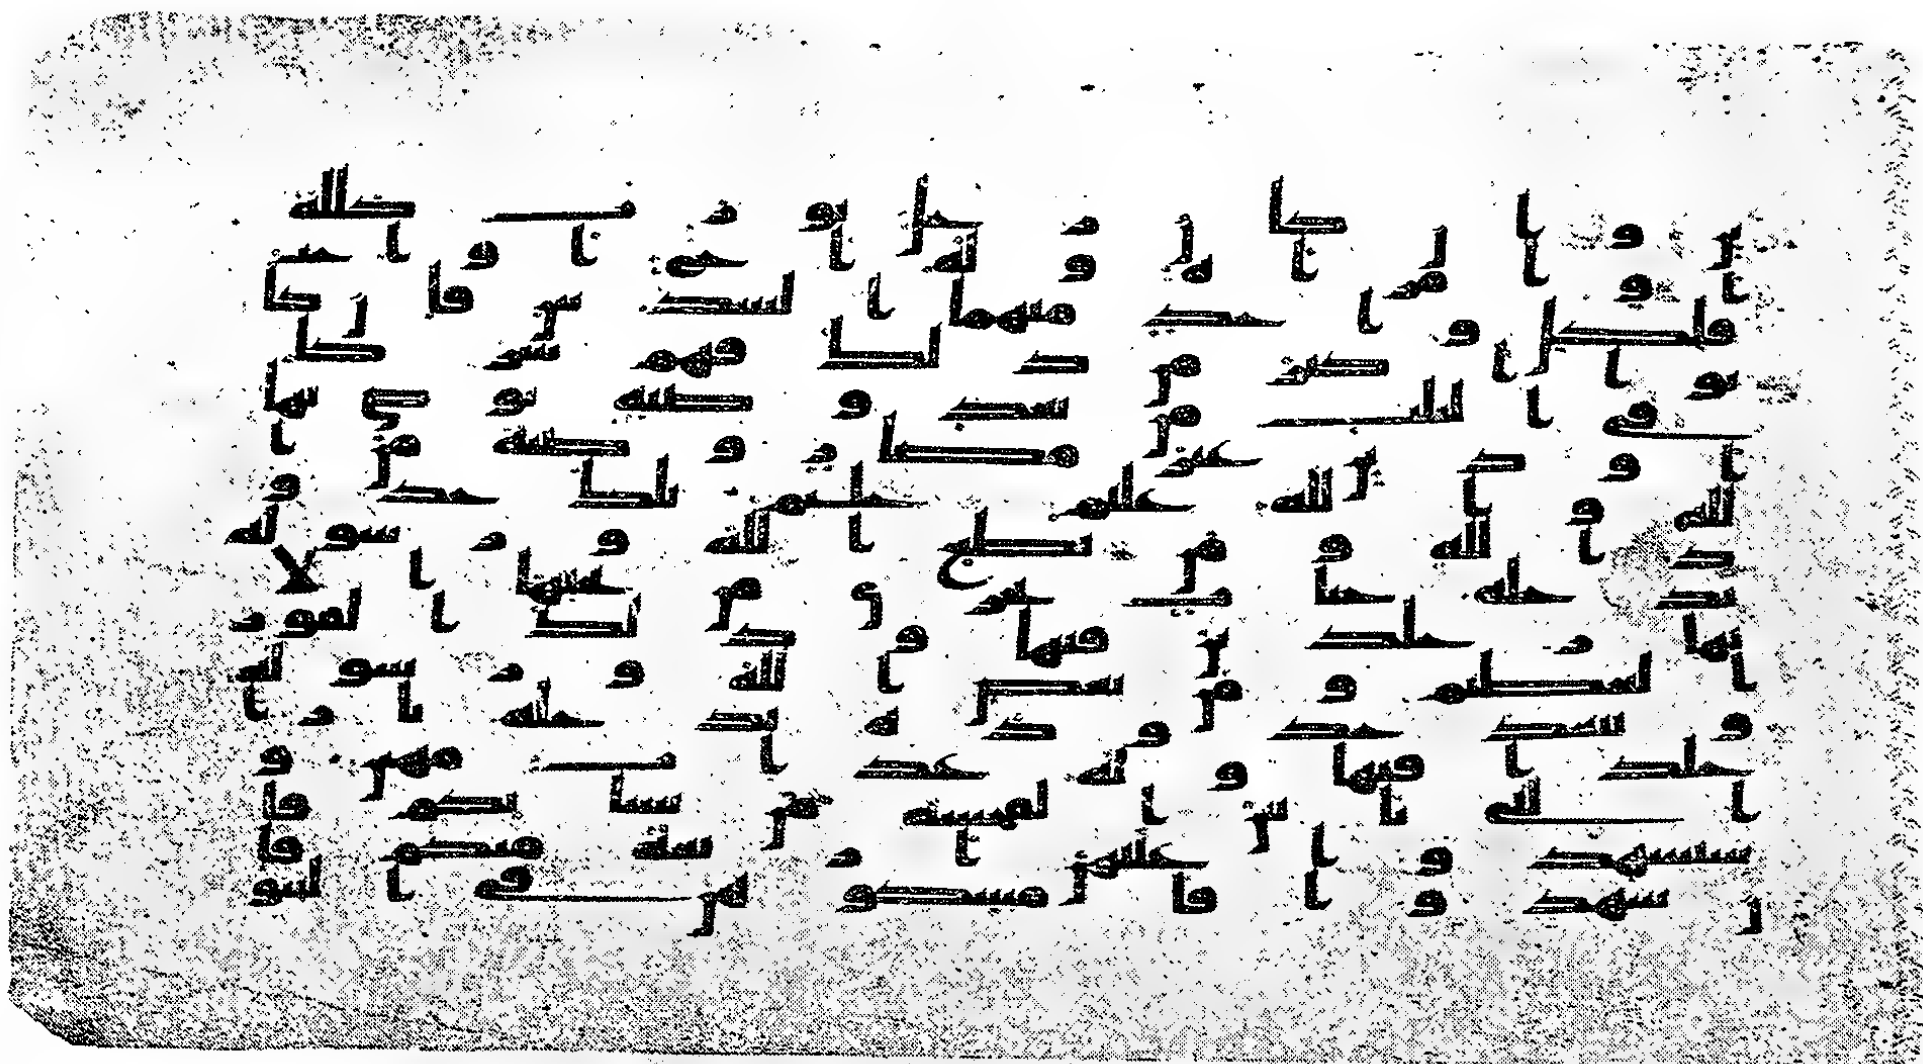 ين وان كان رجل يورث كللة
او امراة وله اخ او اخت
فلكل وحد منهما السدس فان كا
نوا اكثر من ذلك فهم شركا
فى الثلث من بعد وصية يوصى بها
او دين غير مضار وصية من ا
لله والله عليم حليم تلك حدو
د الله ومن يطع الله ورسوله
يدخله جنت تجرى من تحتها الا
نهر خلدين فيها وذلك الفوز
العظيم ومن يعص الله ورسوله
ويتعد حدوده يدخله نارا
خلدا فيها وله عذاب مهين و
التى ياتين الفحشة من نسايكم فا
ستشهدوا عليهن اربعة منكم فا
ن شهدوا فامسكوهن فى البيو